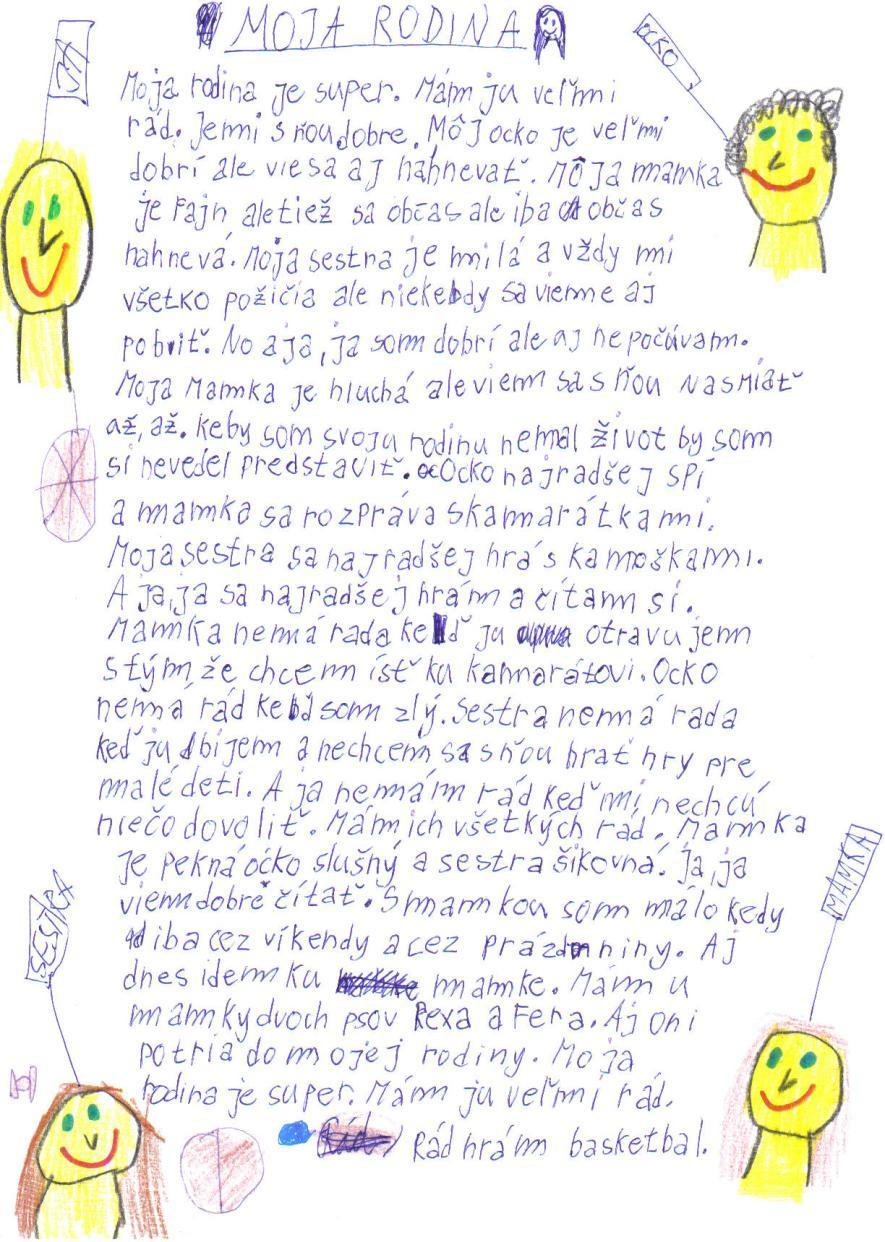 MOJA RODINA
JA
OCKO
Moja rodina je super. Mám ju veľmi
rád. Jemi s ňou dobre. Môj ocko je veľmi
dobrí ale vie sa aj nahnevať. Môja mamka
je Fajn ale tiež sa občas ale iba občas
nahnevá. Moja sestra je milá a vždy mi
všetko požičia ale niekedy sa vieme aj
pobiť. No a ja, ja som dobrí ale aj nepočúvam.
Moja Mamka je hluchá ale viem sa s ňou nasmiať
až, až. Keby som svoju rodinu nemal život by som
si nevedel predstaviť. Ocko najradšej spí
a mamka sa rozpráva s kamarátkami.
Moja sestra sa najradšej hrá s kamoškami.
A ja, ja sa najradšej hrám a čítam si.
Mamka nemá rada keď ju otravujem
s tým, že chcem ísť ku kamarátovi. Ocko
nemá rád keď som zlý. Sestra nemá rada
keď ju bijem a nechcem sa s ňou hrať hry pre
malé deti. A ja nemám rád keď mi nechcú
niečo dovoliť. Mám ich všetkých rád. Mamka
je pekná ocko slušný a sestra šikovná. Ja, ja
viem dobre čítať. S mamkou som málo kedy
iba cez víkendy a cez prázdniny. Aj
dnes idem ku mamke. Mám u
mamky dvoch psov Rexa a Fera. Aj oni
potria do mojej rodiny. Moja
rodina je super. Mám ju veľmi rád.
Rád hrám basketbal.
SESTRA
MAMKA